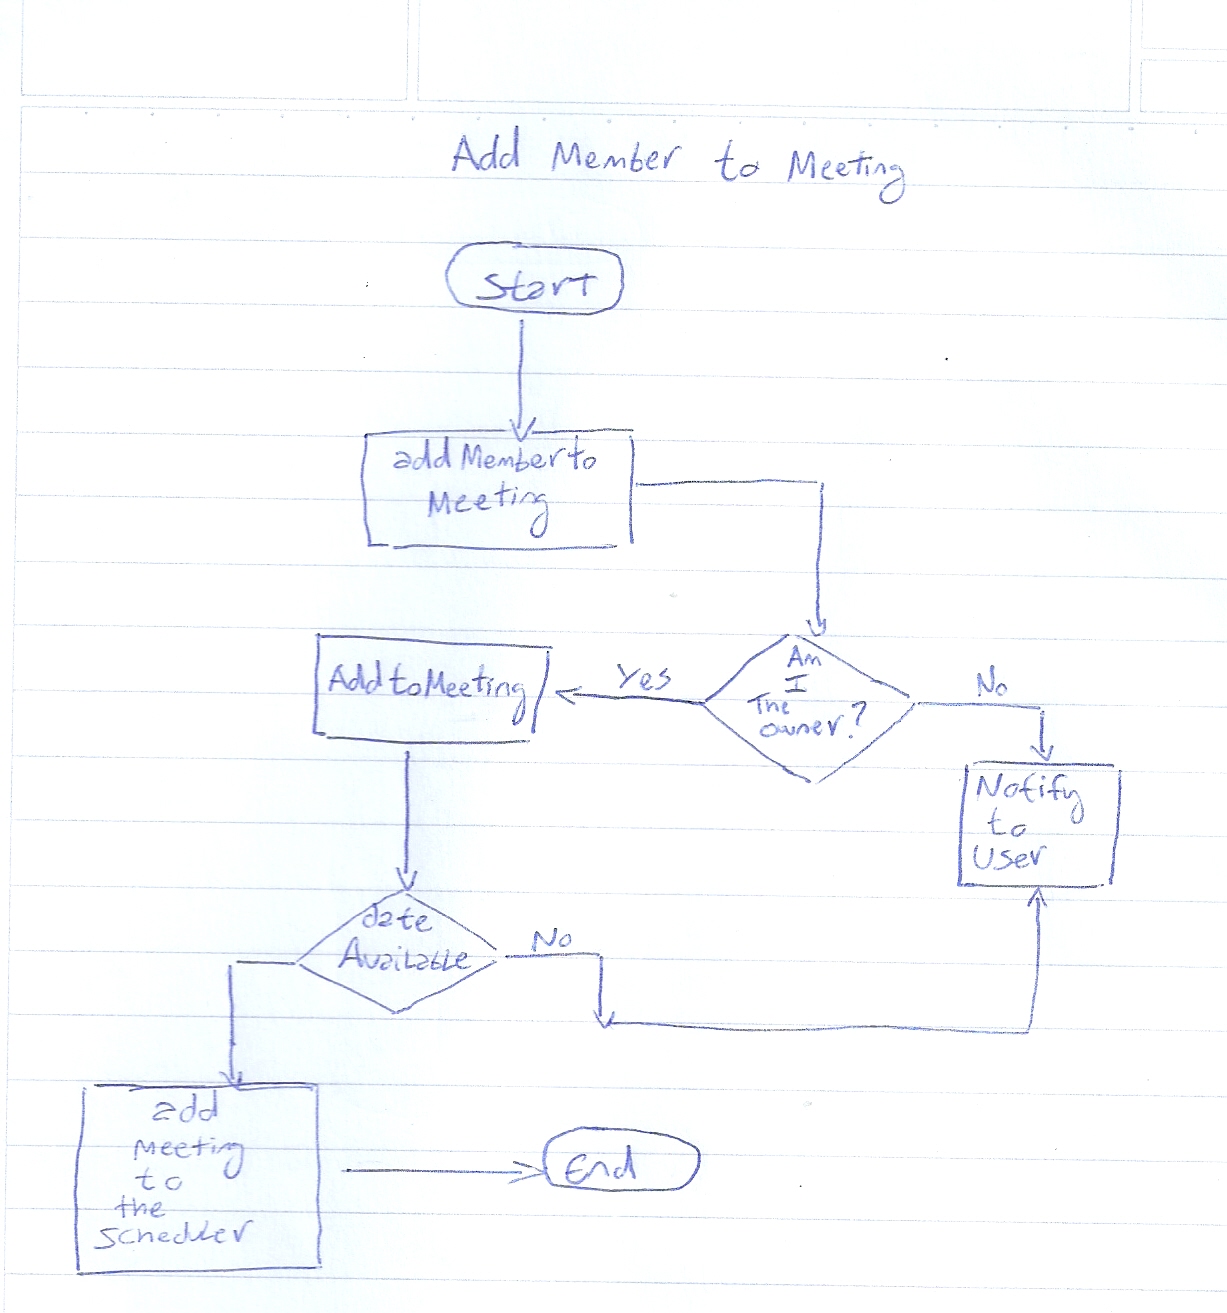 Add Member to Meeting
Start
addMemberto
Meeting
Am
I
The
owner?
Yes
No
AddtoMeeting
Notify
to
User
date
Available
No
add
Meeting
to
the
Scheduler
End